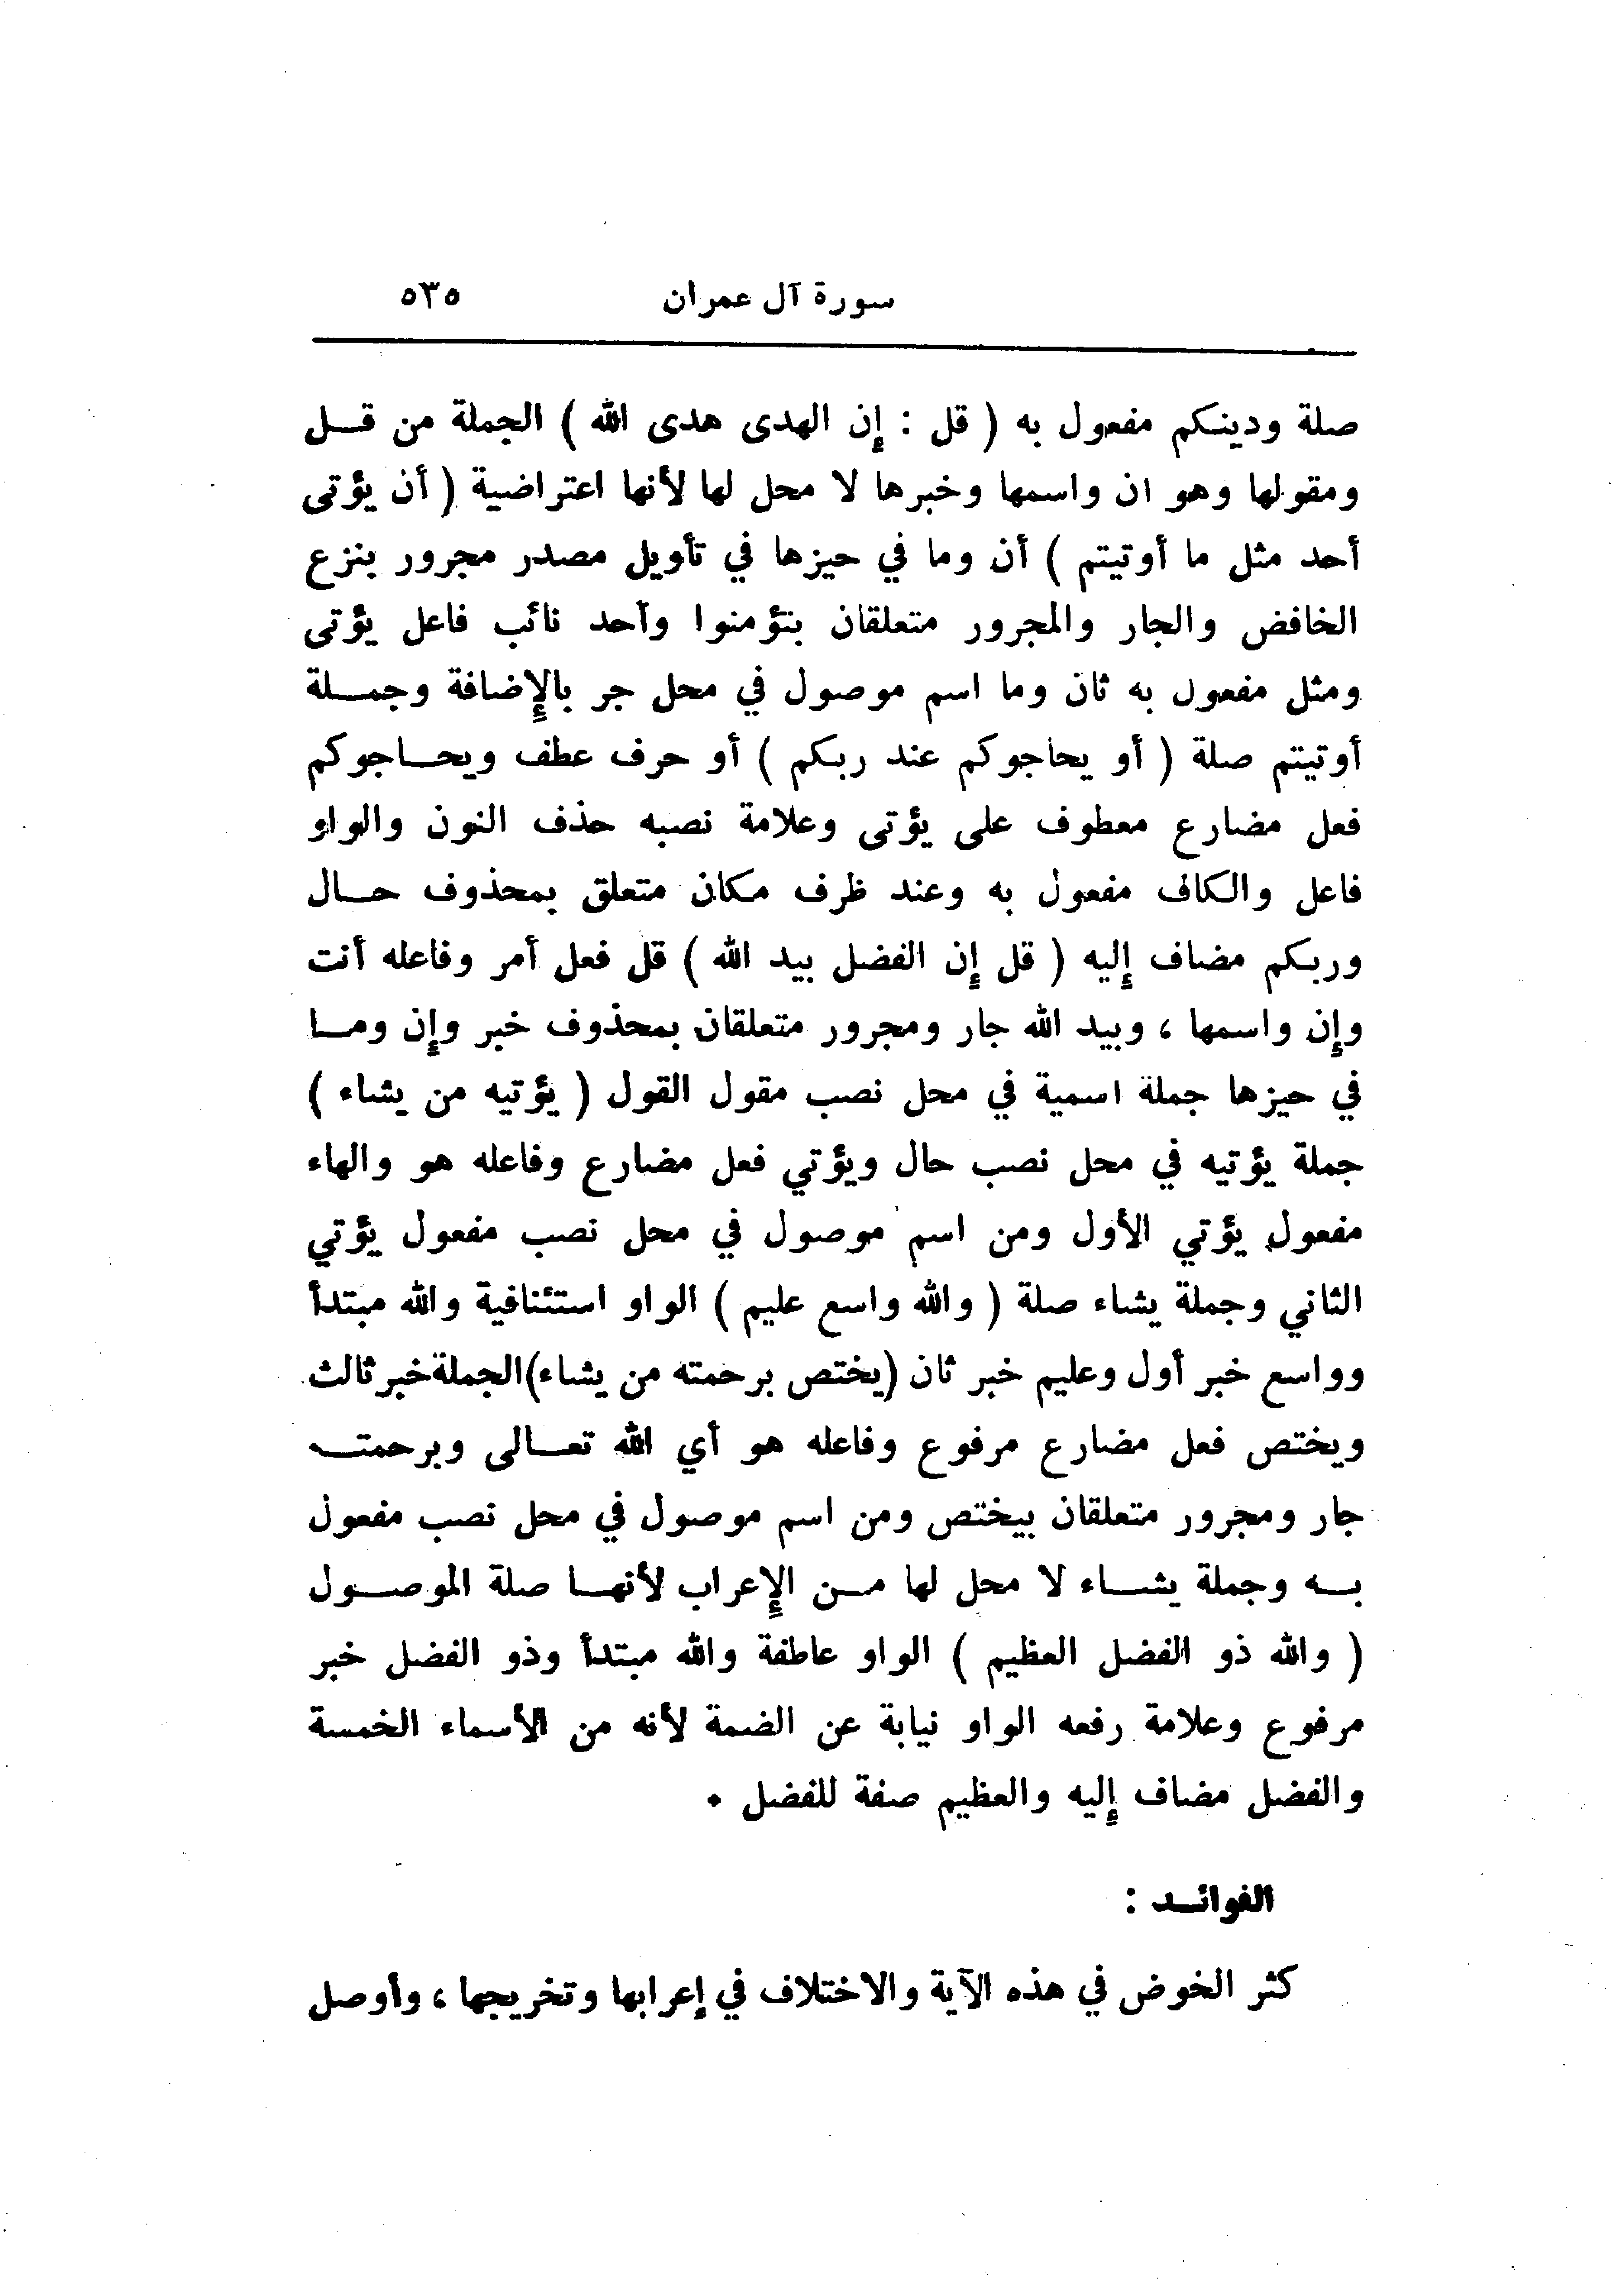 سورة آل عمران ٥٣٥
صلة ودينكم مفعول به ( قل : إن الهدى هدى الله ) الجملة من قـل
ومقولها وهو ان واسمها وخبرها لا محل لها لأنها اعتراضية ( أن يؤتى
أحد مثل ما أوتيتم ) أن وما في حيزها في تأويل مصدر مجرور بنزع
الخافض والجار والمجرور متعلقان بتؤمنوا وأحد نائب فاعل يؤتى
ومثل مفعول به ثان وما اسم موصول في محل جر بالإضافة وجمـلة
أوتيتم صلة ( أو يحاجوكم عند ربكم ) أو حرف عطف ويحـاجوكم
فعل مضارع معطوف على يؤتى وعلامة نصبه حذف النون والواو
فاعل والكاف مفعول به وعند ظرف مكان متعلق بمحذوف حـال
وربكم مضاف إليه ( قل إن الفضل بيد الله ) قل فعل أمر وفاعله أنت
وإن واسمها ، وبيد الله جار ومجرور متعلقان بمحذوف خبر وإن ومـا
في حيزها جملة اسمية في محل نصب مقول القول ( يؤتيه من يشاء )
جملة يؤتيه في محل نصب حال ويؤتي فعل مضارع وفاعله هو والهاء
مفعول يؤتي الأول ومن اسم موصول في محل نصب مفعول يؤتي
الثاني وجملة يشاء صلة ( والله واسع عليم ) الواو استئنافية والله مبتدأ
وواسع خبر أول وعليم خبر ثان (يختص برحمته من يشاء)الجملة خبر ثالث
ويختص فعل مضارع مرفوع وفاعله هو أي الله تعـالى وبرحمتـه
جار ومجرور متعلقان بيختص ومن اسم موصول في محل نصب مفعول
بـه وجملة يشـاء لا محل لها مـن الإعراب لأنهـا صلة الموصـول
( والله ذو الفضل العظيم ) الواو عاطفة والله مبتدأ وذو الفضل خبر
مرفوع وعلامة رفعه الواو نيابة عن الضمة لأنه من الأسماء الخمسة
والفضل مضاف إليه والعظيم صفة للفضل .
الفوائـد :
كثر الخوض في هذه الآية والاختلاف في إعرابها وتخريجها ، وأوصل